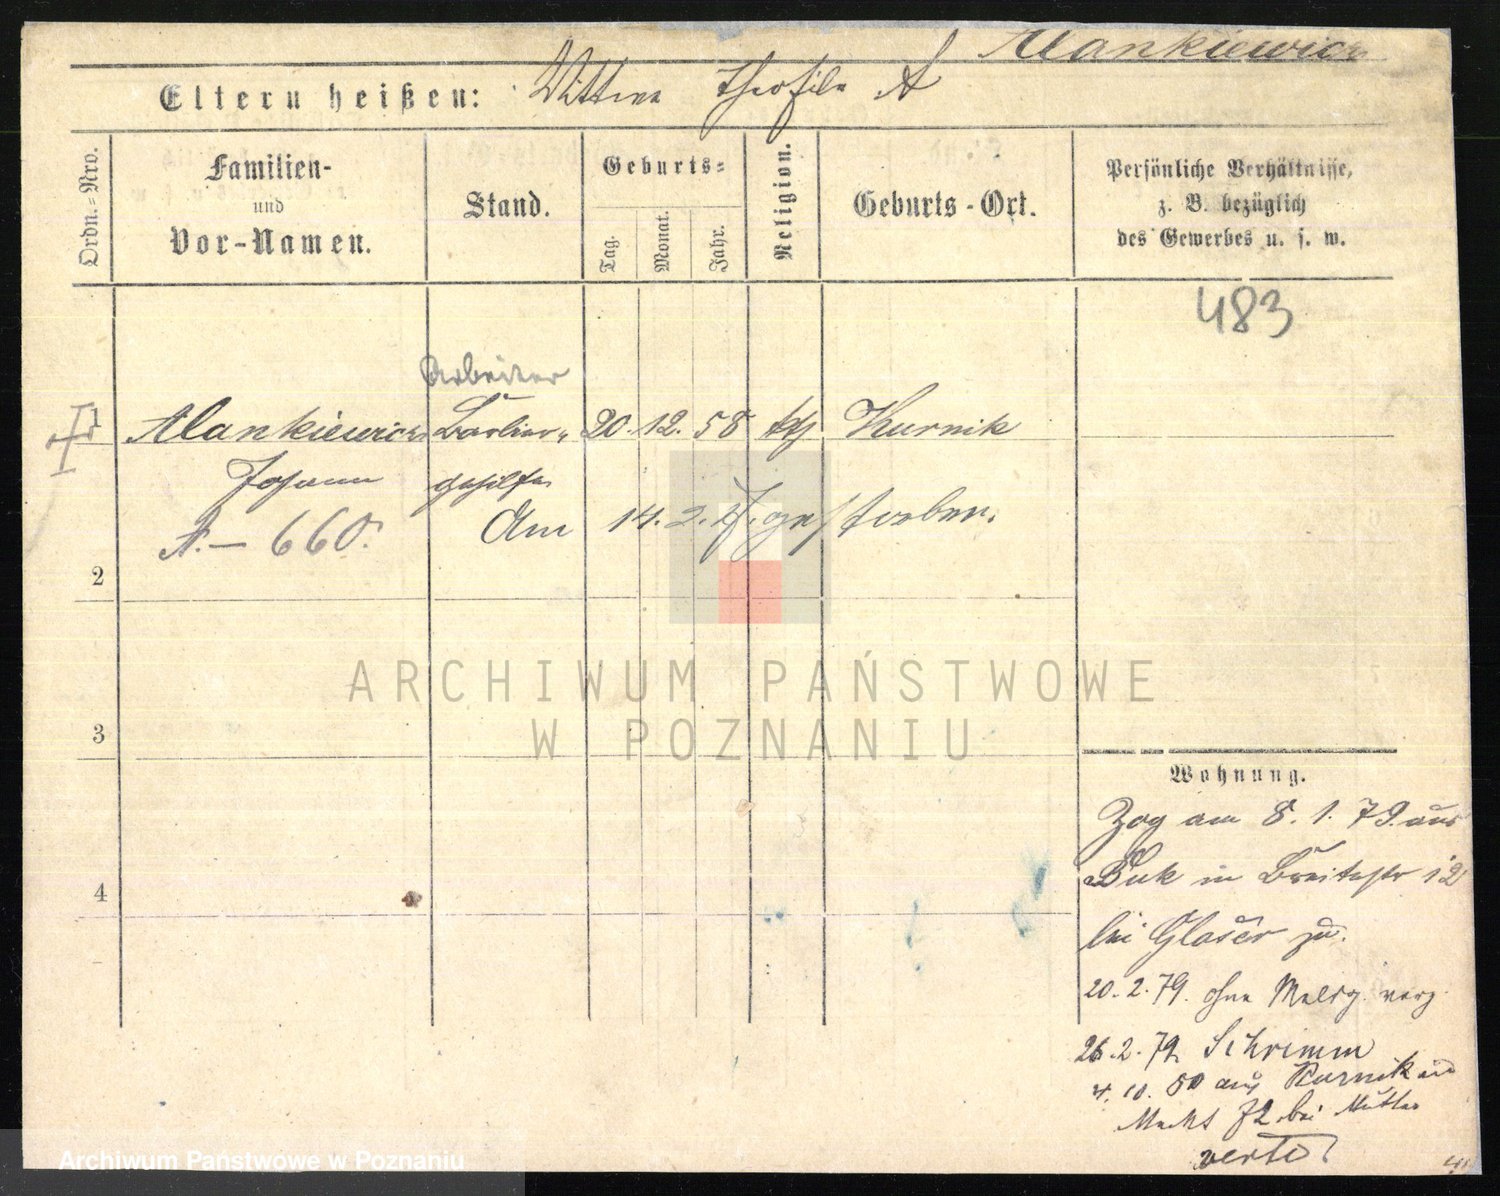 Alankiewicz
Eltern heißen: Wittwe Theofila A
Ordn.=Nro.
Familien-
und
Vor-Namen.
Stand.
Geburts=
Tag.
Monat.
Jahr.
Religion.
Geburts-Ort.
Persönliche Verhältnisse,
z. B. bezüglich
des Gewerbes u. s. w.
483
Arbeiter
1 Alankiewicz Barbier- 20. 12. 58 kth Kurnik
Johann gehilfe
A. — 660. Am 14. 2. gestorben.
2
3
4
Wohnung.
Zog am 8. 1. 79. aus
Buk in Breitestr 12
bei Glaser zu.
20. 2. 79. ohne Meldg. verz.
26. 2. 79 Schrimm
4. 10. 80 aus Kurnik an
Markt 72 bei Mutter
verte
ARCHIWUM PAŃSTWOWE
W POZNANIU
Archiwum Państwowe w Poznaniu